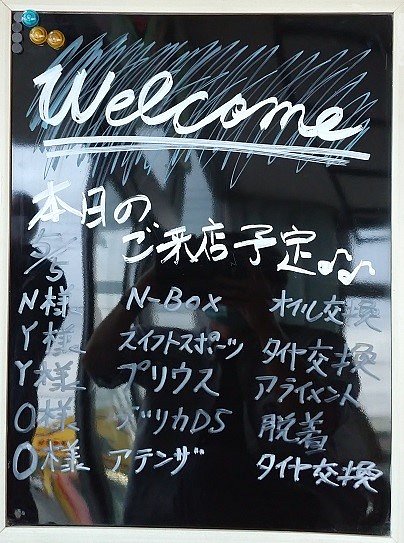 Welcome
本日の
ご来店予定♪♪
5/5
N様 N-BOX オイル交換
Y様 スイフトスポーツ タイヤ交換
Y様 プリウス アライメント
O様 デリカD5 脱着
O様 アテンザ タイヤ交換